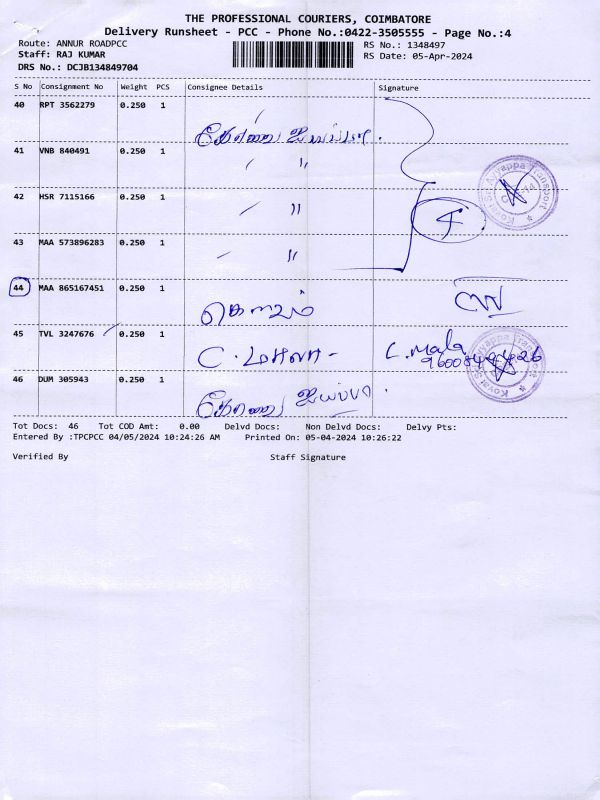 THE PROFESSIONAL COURIERS, COIMBATORE
Delivery Runsheet - PCC - Phone No.:0422-3505555 - Page No.:4
Route: ANNUR ROADPCC
RS No.: 1348497
Staff: RAJ KUMAR
RS Date: 05-Apr-2024
DRS No.: DCJB134849704
S No Consignment No Weight PCS Consignee Details Signature
40 RPT 3562279 0.250 1
41 VNB 840491 0.250 1 〃
42 HSR 7115166 0.250 1 〃
43 MAA 573896283 0.250 1 〃
4
44 MAA 865167451 0.250 1
45 TVL 3247676 0.250 1 C. மாலா - C. Mala
46 DUM 305943 0.250 1
Tot Docs: 46 Tot COD Amt: 0.00 Delvd Docs: Non Delvd Docs: Delvy Pts:
Entered By :TPCPCC 04/05/2024 10:24:26 AM Printed On: 05-04-2024 10:26:22
Verified By Staff Signature